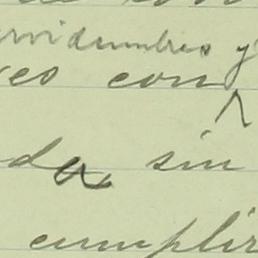 ervidumbres y
ves con
da sin
cumplir